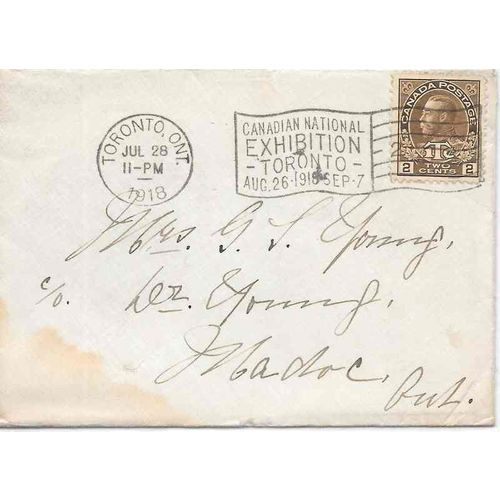 TORONTO, ONT.
JUL 28
11-PM
1918
CANADIAN NATIONAL
EXHIBITION
-TORONTO-
AUG. 26-1918-SEP. 7
CANADA POSTAGE
1Tc
2 TWO CENTS 2
Mrs. G. S. Young,
c/o. Dr. Young,
Madoc,
Ont.